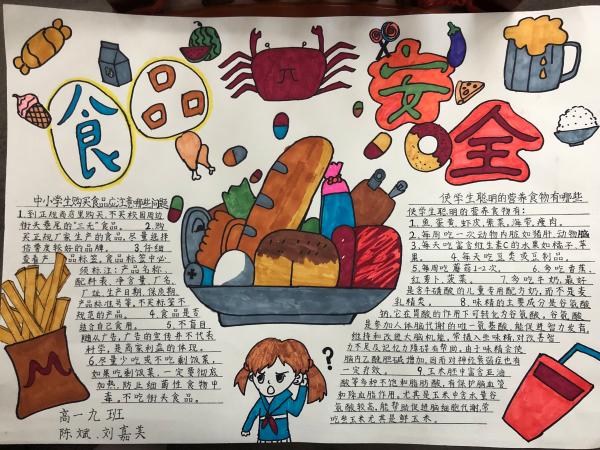 食品安全
中小学生购买食品应注意哪些问题
1.到正规商店里购买,不买校园周边
街头巷尾的“三无”食品。 2.购
买正规厂家生产的食品,尽量选择
信誉度较好的品牌。 3.仔细
查看产品标签。食品标签中必
须标注:产品名称、
配料表、净含量、厂名、
厂址、生产日期、保质期、
产品标准号等。不买标签不
规范的产品。 4.食品是否
适合自己食用。 5.不盲目
随从广告,广告的宣传并不代表
科学,是商家利益的体现。
6.尽量少吃或不吃剩饭菜,
如果吃剩饭菜,一定要彻底
加热,防止细菌性食物中
毒。不吃街头食品。
高一九班
陈斌、刘嘉芙
使学生聪明的营养食物有哪些
使学生聪明的营养食物有:
1.鱼、蛋黄、虾皮、紫菜、海带、瘦肉。
2.每周吃一次动物内脏如猪肝、动物脑
3.每天吃富含维生素C的水果如橘子、苹
果。 4.每天吃豆类或豆制品。
5.每周吃蘑菇1-2次。 6.多吃香蕉、
红萝卜、菠菜。 7.多吃牛奶,最好
是含牛磺酸的儿童专用配方奶,而不是麦
乳精类。 8.味精的主要成分是谷氨酸
钠,它在胃酸的作用下可转化为谷氨酸。谷氨酸
是参加人体脑代谢的唯一氨基酸,能促进智力发育,
维持和改进大脑机能。常摄入些味精,对改善智
力不足及记忆力障碍有帮助。由于味精会使
脑内乙酰胆碱增加,因而对神经衰弱症也有
一定疗效。 9.玉米胚中富含亚油
酸等多种不饱和脂肪酸,有保护脑血管
和降血脂作用。尤其是玉米中含水量谷
氨酸较高,能帮助促进脑细胞代谢,常
吃些玉米尤其是鲜玉米。